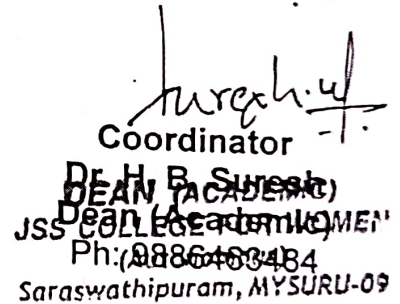 Suresh. H
Coordinator
Dr. H. B. Suresh
DEAN (ACADEMIC)
Dean (Academic)
JSS COLLEGE FOR WOMEN
(Autonomous)
Ph: 9886463484
Saraswathipuram, MYSURU-09